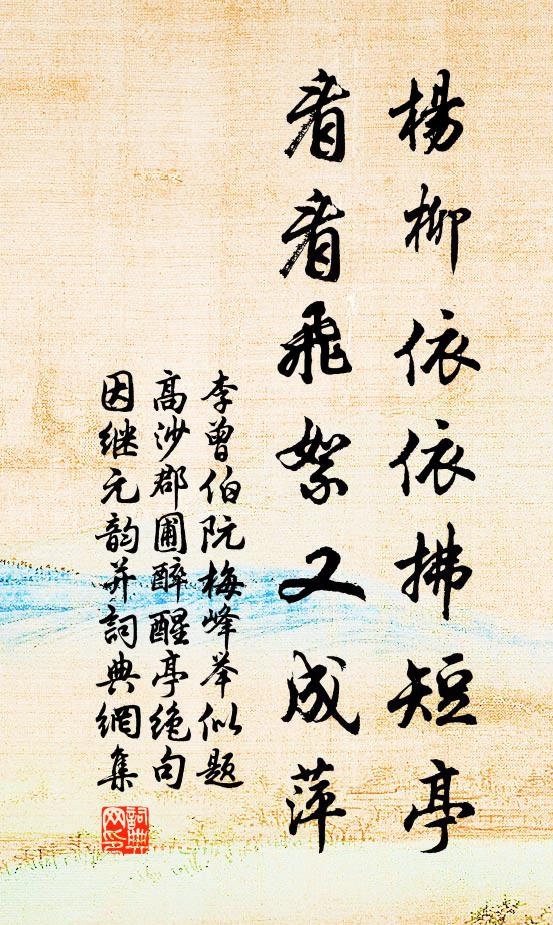 楊柳依依拂短亭
看看飛絮又成萍
李曾伯阮梅峰举似题
高沙郡圃醉醒亭绝句
因继元韵并詞典網集